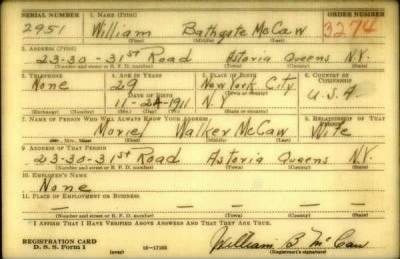 SERIAL NUMBER 1. NAME (Print) ORDER NUMBER
2951 William Bathgate McCaw 3274
(First) (Middle) (Last)
2. ADDRESS (Print)
23-30-31st Road Astoria Queens N.Y.
(Number and street or R. F. D. number) (Town) (County) (State)
3. TELEPHONE 4. AGE IN YEARS 5. PLACE OF BIRTH 6. COUNTRY OF CITIZENSHIP
None 29 New York City
DATE OF BIRTH (Town or county)
11-24-1911 N.Y U.S.A
(Exchange) (Number) (Mo.) (Day) (Yr.) (State or country)
7. NAME OF PERSON WHO WILL ALWAYS KNOW YOUR ADDRESS 8. RELATIONSHIP OF THAT PERSON
Walker McCaw Wife
(Mr., Mrs., Miss) (First) (Middle) (Last)
9. ADDRESS OF THAT PERSON
23-30-31st Road Astoria Queens N.Y.
(Number and street or R. F. D. number) (Town) (County) (State)
10. EMPLOYER'S NAME
None
11. PLACE OF EMPLOYMENT OR BUSINESS
— — — —
(Number and street or R. F. D. number) (Town) (County) (State)
I AFFIRM THAT I HAVE VERIFIED ABOVE ANSWERS AND THAT THEY ARE TRUE.
REGISTRATION CARD
D. S. S. Form 1 (over) 16-17105 William B McCaw
(Registrant's signature)